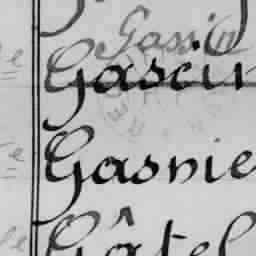 Gassin
Gascin
Gasnie
Gâtel